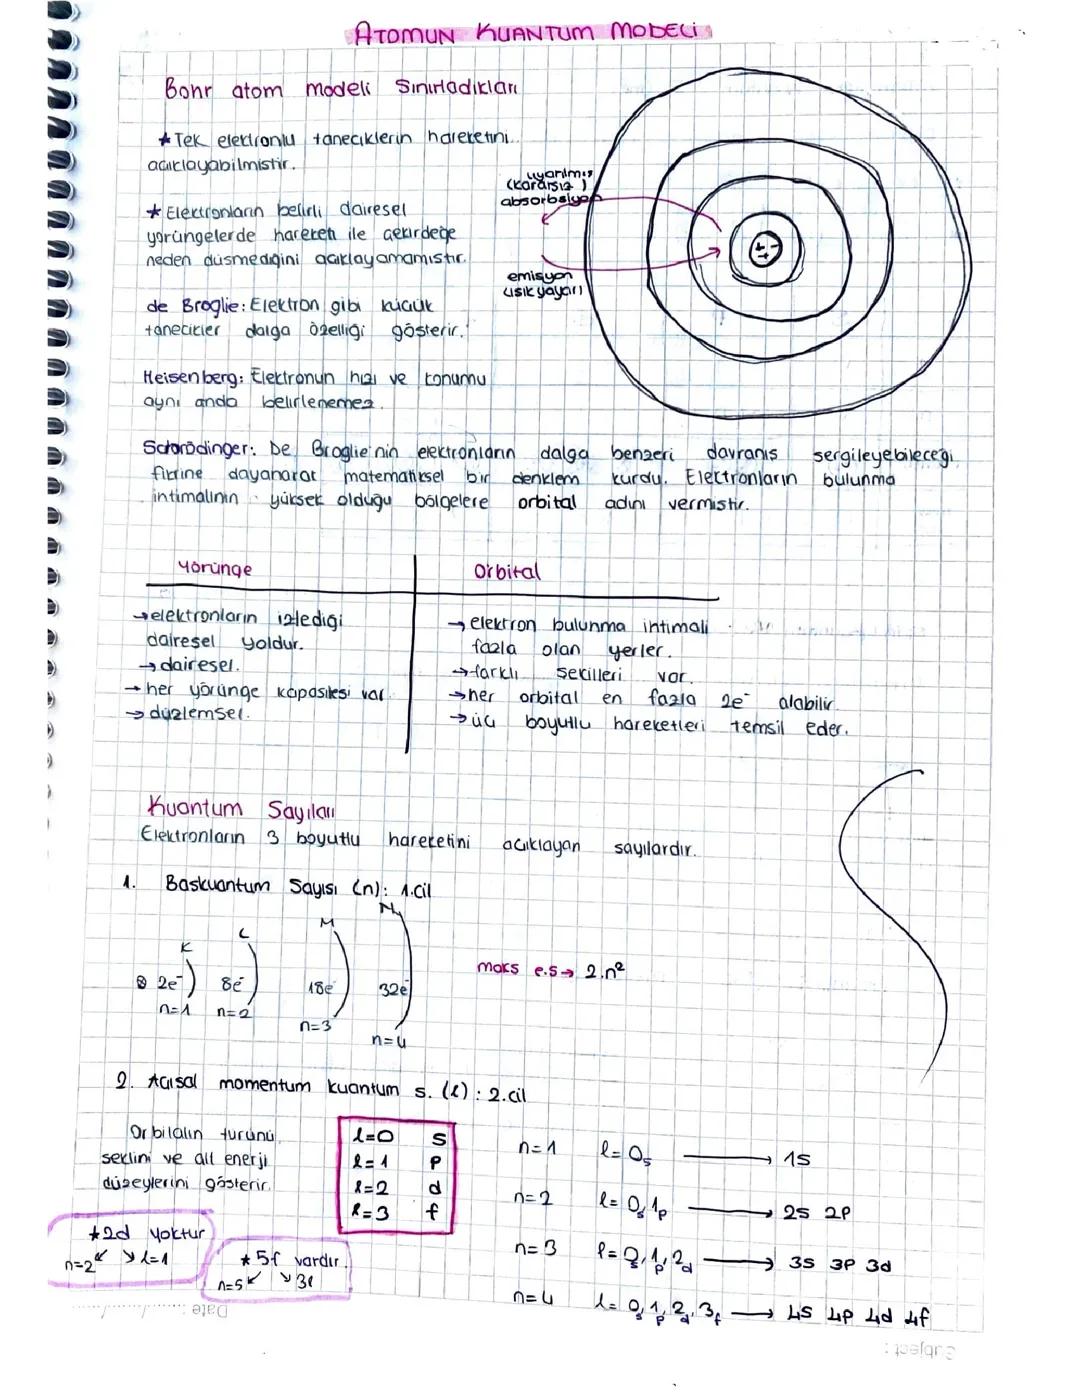 ATOMUN KUANTUM MODELİ
Bohr atom modeli Sınırladıkları
★ Tek elektronlu taneciklerin hareketini
açıklayabilmistir.
★ Elektronların belirli dairesel
yörüngelerde hareketi ile çekirdeğe
neden düsmediğini açıklayamamıstır.
uyarılmıs
(kararsız)
absorbsiyon
emisyon
(ısık yayar)
de Broglie: Elektron gibi küçük
tanecikler dalga özelliği gösterir.
Heisenberg: Elektronun hızı ve konumu
aynı anda belirlenemez.
Schrödinger: De Broglie'nin elektronların dalga benzeri davranıs sergileyebileceği
fikrine dayanarak matematiksel bir denklem kurdu. Elektronların bulunma
intimalinin yüksek olduğu bölgelere orbital adını vermistir.
Yörünge
orbital
→ elektronların izlediği
dairesel yoldur.
→ dairesel.
→ her yörünge kapasitesi var
→ düzlemsel.
→ elektron bulunma intimali
fazla olan yerler.
→ farklı sekilleri var.
→ her orbital en fazla 2e⁻ alabilir.
→ üç boyutlu hareketleri temsil eder.
Kuantum Sayıları
Elektronların 3 boyutlu hareketini açıklayan sayılardır.
1. Baskuantum Sayısı (n): 1.cil
K L M N
2e⁻ 8e⁻ 18e⁻ 32e⁻
n=1 n=2 n=3 n=4
maks e.s → 2.n²
2. Açısal momentum kuantum s. (ℓ): 2.cil
Orbitalin türünü
seklini ve alt enerji
düzeylerini gösterir.
ℓ=0 s
ℓ=1 p
ℓ=2 d
ℓ=3 f
n=1 ℓ=0s → 1s
n=2 ℓ=0s, 1p → 2s 2p
n=3 ℓ=0s, 1p, 2d → 3s 3p 3d
n=4 ℓ=0s, 1p, 2d, 3f → 4s 4p 4d 4f
★2d yoktur
n=2 ℓ=1
★5f vardır.
n=5 3ℓ
Date : ....../....../......
Subject :